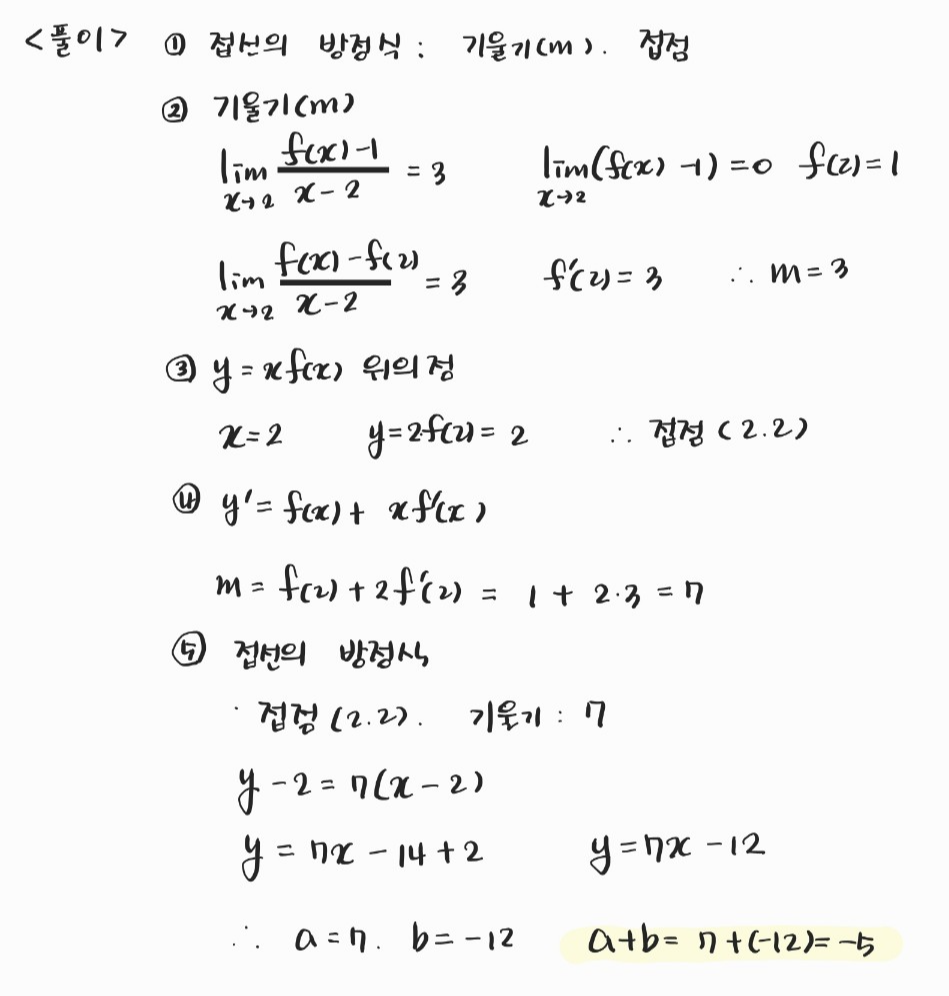 <풀이> ① 접선의 방정식 : 기울기(m). 접점
② 기울기(m)
lim_{x→2} (f(x)-1)/(x-2) = 3 lim_{x→2} (f(x)-1)=0 f(2)=1
lim_{x→2} (f(x)-f(2))/(x-2) = 3 f'(2)=3 ∴ m=3
③ y=xf(x) 위의 점
x=2 y=2f(2)=2 ∴ 접점 (2.2)
④ y'=f(x)+xf'(x)
m=f(2)+2f'(2) = 1+2·3=7
⑤ 접선의 방정식
· 접점 (2.2). 기울기 : 7
y-2=7(x-2)
y=7x-14+2 y=7x-12
∴ a=7. b=-12 a+b=7+(-12)=-5